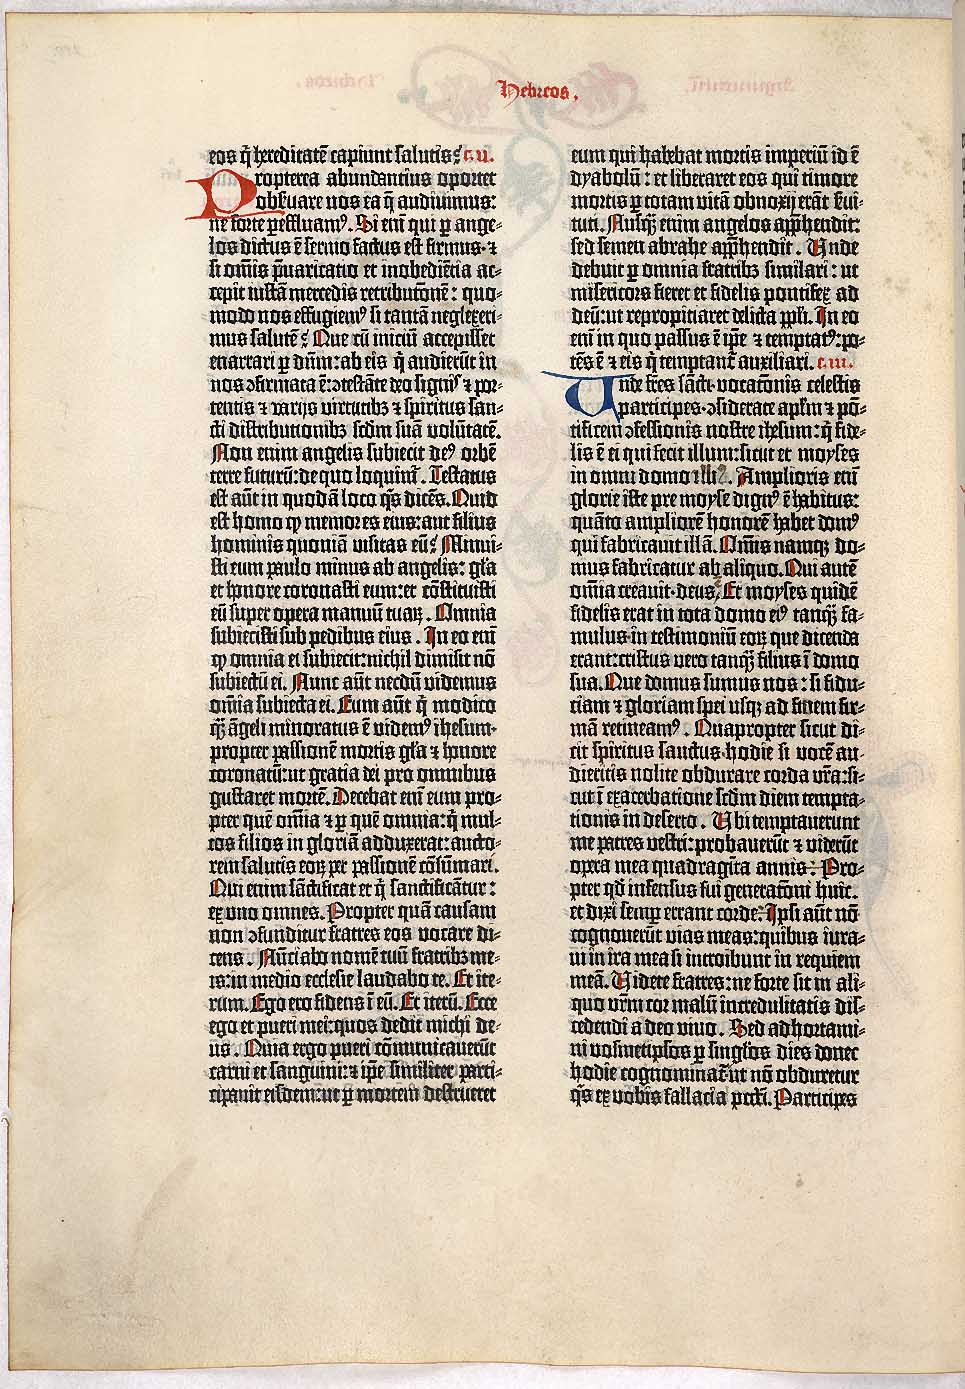 Hebreos.
eos q̄ hereditatē capiunt salutis. c. ii.
Propterea abundantius oportet
obs̄uare nos ea q̄ audiuimus:
ne forte p̲effluamꝰ. Si eni̅ qui p̲ ange-
los dictus ē sermo factus est firmus · ⁊
si om̄is p̄uaricatio et inobediētia ac-
cepit iustā mercedis retributōnē: quo-
modo nos effugiemꝰ si tantā neglexeri-
mus salutē. Que cū iniciū accepisset
enarrari p̲ dn̄m: ab eis q̄ audierūt in
nos ꝯfirmata ē: ꝯtestāte deo signis ⁊ por-
tentis ⁊ varijs virtutibꝫ ⁊ spiritus san-
cti distributionibꝫ scd̄m suā volūtatē.
Non enim angelis subiecit deꝰ orbē
terre futurū: de quo loquimur̄. Testatus
est aūt in quodā loco q̄s dicēs. Quid
est homo qꝫ memor es eius: aut filius
hominis quoniā visitas eū. Minui-
sti eum paulo minus ab angelis: gl̄a
et honore coronasti eum: et cōstituisti
eū super opera manuū tuaꝝ. Omnia
subiecisti sub pedibus eius. In eo eni̅
qꝫ omnia ei subiecit: nichil dimisit nō
subiectū ei. Nunc aūt necdū videmus
om̄ia subiecta ei. Eum aūt q̄ modico
q̄ꝫ āgeli minoratus ē videmꝰ ihesum·
propter passionē mortis gl̄a ⁊ honore
coronatū: ut gratia dei pro omnibus
gustaret mortē. Decebat eni̅ eum pro-
pter quē om̄ia ⁊ p̲ quē omnia: q̄ mul-
tos filios in gloriā adduxerat: aucto-
rem salutis eoꝝ per passionē cōsūmari.
Qui enim sāctificat et q̄ sanctificātur:
ex uno omnes. Propter quā causam
non ꝯfunditur fratres eos vocare di-
cens. Nūciabo nomē tuū fratribꝫ me-
is: in medio ecclesie laudabo te. Et ite-
rum. Ego ero fidens ī eū. Et iterū. Ecce
ego et pueri mei: quos dedit michi de-
us. Quia ergo pueri cōmunicauerūt
carni et sanguini: ⁊ ip̄e similiter parti-
cipauit eisdem: ut p̲ mortem destrueret
eum qui habebat mortis imperiū id ē
dyabolū: et liberaret eos qui timore
mortis p̲ totam vitā obnoxij erāt s̄ui-
tuti. Nusq̄ꝫ enim angelos app̄hendit:
sed semen abrahe app̄hendit. Unde
debuit p̲ omnia fratribꝫ similari: ut
misericors fieret et fidelis pontifex ad
deū: ut repropitiaret delicta pp̄li. In eo
eni̅ in quo passus ē ip̄e ⁊ temptatꝰ: po-
tēs ē ⁊ eis q̄ temptant̄ auxiliari. c. iii.
Unde fr̄es sācti· vocatōnis celestis
participes· ꝯsiderate ap̄lm ⁊ pō-
tificem ꝯfessionis nostre ihesum: q̄ fide-
lis ē ei qui fecit illum: sicut et moyses
in omni domo illiꝰ. Amplioris eni̅
glorie iste pre moyse dignꝰ ē habitus:
quāto ampliorē honorē habet domꝰ
qui fabricauit illā. Om̄is namqꝫ do-
mus fabricatur ab aliquo. Qui autē
om̄ia creauit · deus ē. Et moyses quidē
fidelis erat in tota domo eiꝰ tanq̄ꝫ fa-
mulus· in testimoniū eoꝝ que dicenda
erant: cristus vero tanq̄ꝫ filius ī domo
sua. Que domus sumus nos: si fidu-
ciam ⁊ gloriam spei usqꝫ ad finem fir-
mā retineamꝰ. Quapropter sicut di-
cit spiritus sanctus· hodie si vocē au-
dieritis nolite obdurare corda vr̄a: si-
cut ī exacerbatione scd̄m diem tempta-
tionis in deserto. Ubi temptauerunt
me patres vestri: probauerūt ⁊ viderūt
opera mea quadragīta annis: Pro-
pter qd̄ infensus fui generatōni huic·
et dixi semp̲ errant corde. Ipsi aūt nō
cognouerūt vias meas: quibus iura-
ui in ira mea si introibunt in requiem
meā. Videte fratres: ne forte sit in ali-
quo vr̄m cor malū incredulitatis dis-
cedendi a deo viuo. Sed adhortami-
ni vosmetipsos p̲ singl̄os dies donec
hodie cognominat̄· ut nō obduretur
q̄s ex vobis fallacia pctī. Participes